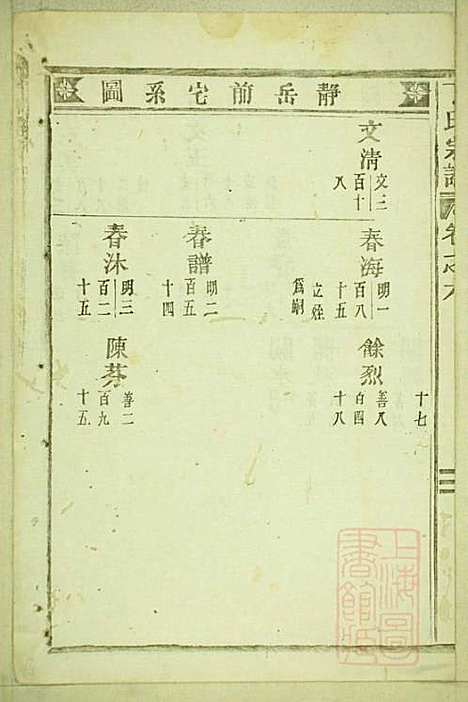 靜岳前宅系圖
氏宗譜 卷之六
文清
文三
百十
八
春海
明一
百八
十五
立姪
爲嗣
春譜
明二
百五
十四
春沐
明三
百二
十五
十七
餘烈
善八
百四
十八
陳芬
善二
百九
十五
上海圖
書館藏